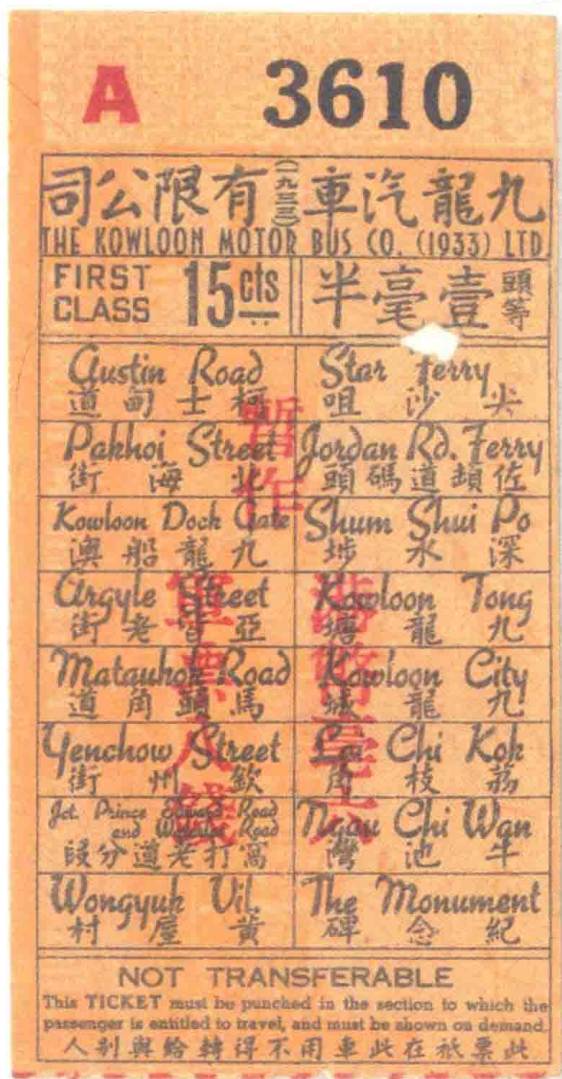 A 3610
九龍汽車(一九三三)有限公司
THE KOWLOON MOTOR BUS CO. (1933) LTD.
FIRST CLASS 15 cts 頭等 壹毫半
Austin Road
柯士甸道
Star Ferry
尖沙咀
Pakhoi Street
北海街
Jordan Rd. Ferry
佐頓道碼頭
Kowloon Dock Gate
九龍船澳
Shum Shui Po
深水埗
Argyle Street
亞皆老街
Kowloon Tong
九龍塘
Matauhok Road
馬頭角道
Kowloon City
九龍城
Yenchow Street
欽州街
Lai Chi Kok
荔枝角
Jct. Prince Edward Road
and Waterloo Road
窩打老道分段
Ngau Chi Wan
牛池灣
Wongyuk Vil.
黃屋村
The Monument
紀念碑
暫作
軍票八錢
NOT TRANSFERABLE
This TICKET must be punched in the section to which the
passenger is entitled to travel, and must be shown on demand.
此票祇在此車用不得轉給與別人